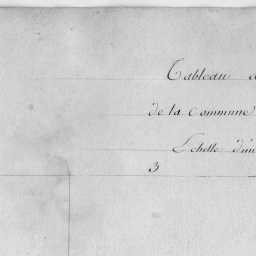 Tableau
de la Commune
Echelle d'un
3